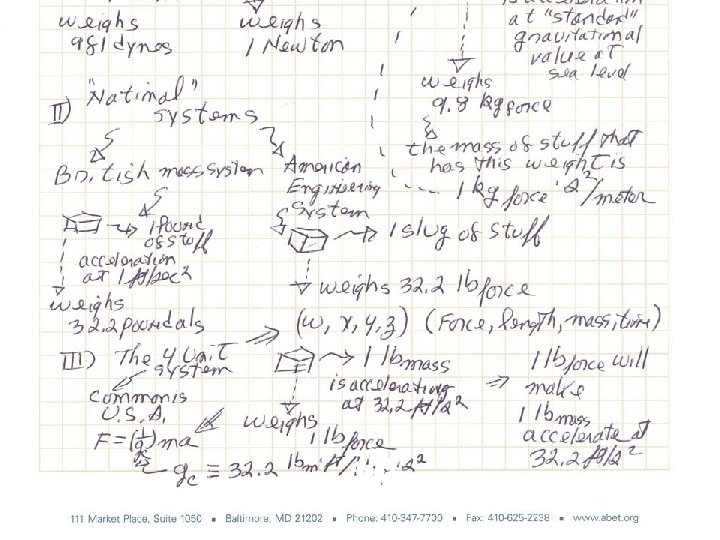 weighs
981 dynes
weighs
1 Newton
at "standard"
gravitational
value at
sea level
weighs
9.8 kg force
the mass of stuff that
has this weight is
1 kg force s²/meter
II) "National"
systems
British mass system
1 Pound
of stuff
acceleration
at 1 ft/sec²
weighs
32.2 poundals
American
Engineering
System
1 slug of stuff
weighs 32.2 lb force
(w, x, y, z) (Force, length, mass, time)
III) The 4 Unit
system
common is
U.S.A.
F = ( ) ma
gc ≡ 32.2 lbm ft/
1 lb mass
is accelerating
at 32.2 ft/s²
weighs
1 lb force
1 lb force will
make
1 lb mass
accelerate at
32.2 ft/s²
111 Market Place, Suite 1050 ■ Baltimore, MD 21202 ■ Phone: 410-347-7700 ■ Fax: 410-625-2238 ■ www.abet.org